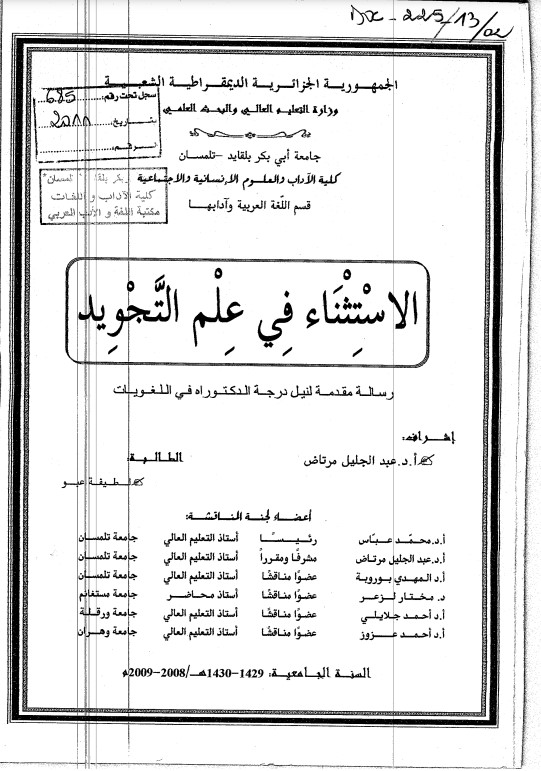 DOC - 225/13/02
الجمهورية الجزائرية الديمقراطية الشعبية
وزارة التعليم العالي والبحث العلمي
سجل تحت رقم 685
بتاريخ 2011
الرقم
جامعة أبي بكر بلقايد - تلمسان
كلية الآداب والعلوم الإنسانية والاجتماعية
قسم اللّغة العربية وآدابها
بكر بلقايد تلمسان
كلية الآداب واللغات
مكتبة اللغة والأدب العربي
الاسْتِثْنَاء فِي عِلْم التَّجْوِيد
رسالة مقدمة لنيل درجة الدكتوراه في اللغويات
إشراف:
أ.د.عبد الجليل مرتاض
الطالبة:
لطيفة عبو
أعضاء لجنة المناقشة:
أ.د.محمّد عبّاس رئيسًا أستاذ التعليم العالي جامعة تلمسان
أ.د.عبد الجليل مرتاض مشرفًا ومقرراً أستاذ التعليم العالي جامعة تلمسان
أ.د.المهدي بوروبة عضوًا مناقشًا أستاذ التعليم العالي جامعة تلمسان
د. مختار لزعر عضوًا مناقشًا أستاذ محاضر جامعة مستغانم
أ.د.أحمد جلايلي عضوًا مناقشًا أستاذ التعليم العالي جامعة ورقلة
أ.د.أحمد عزوز عضوًا مناقشًا أستاذ التعليم العالي جامعة وهران
السنة الجامعية: 1429-1430هـ/2008-2009م